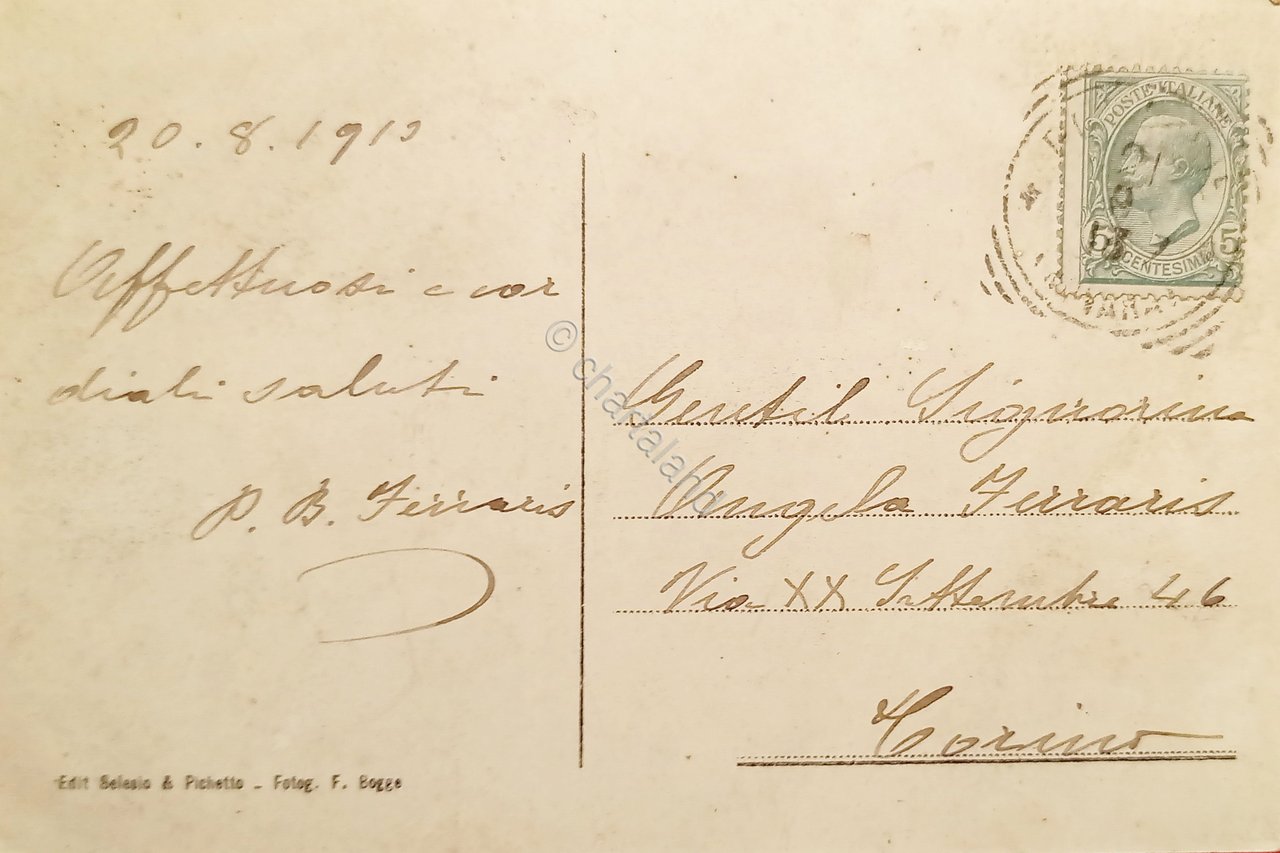 20.8.191
Affettuosi e cor
diali saluti
P. B. Ferraris
Edit Selesio & Pichetto - Fotog. F. Bogge
POSTE ITALIANE
5 CENTESIMI 5
Gentil Signorina
Angela Ferraris
Via XX Settembre 46
Torino
© chartaland